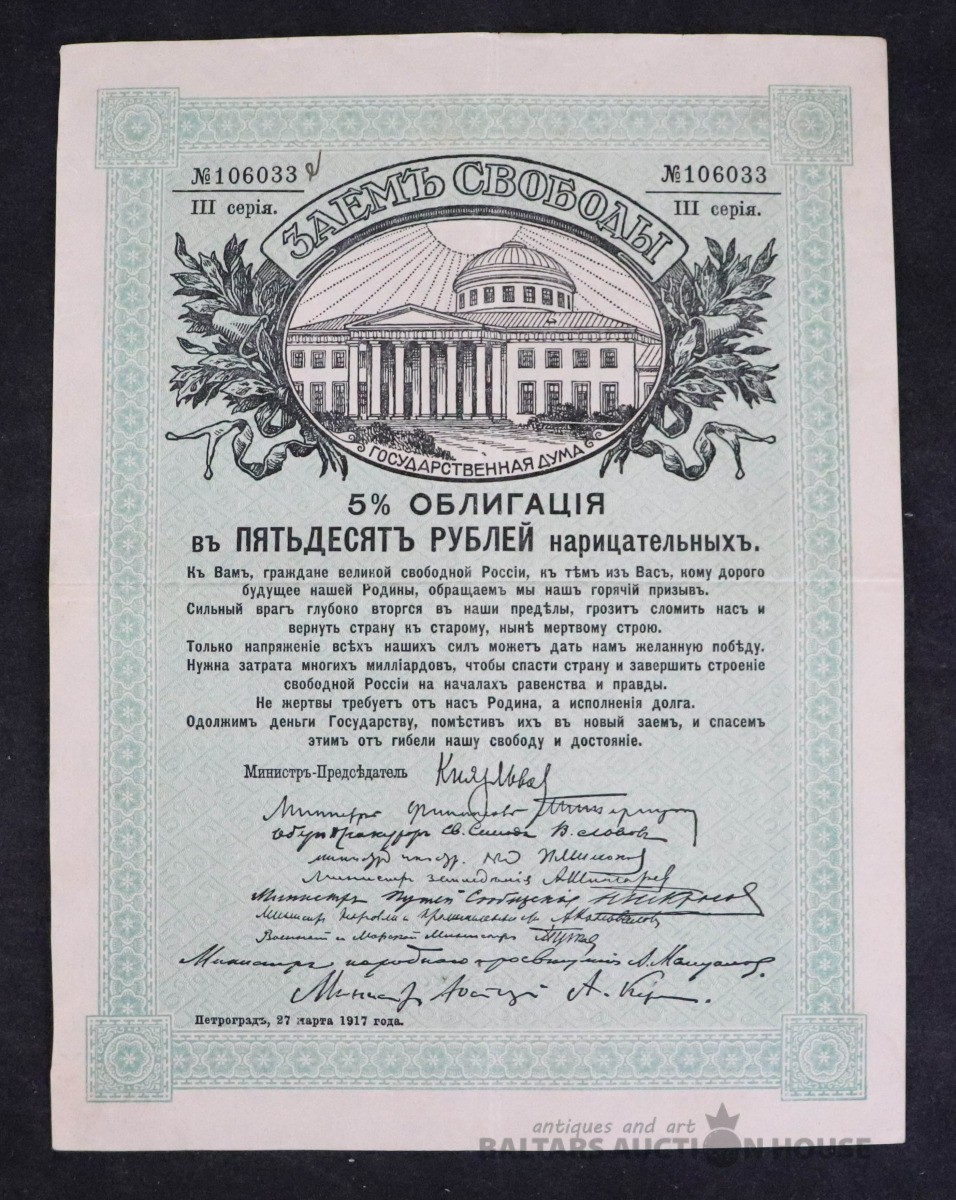 №106033
№106033
III серія.
III серія.
ЗАЕМЪ СВОБОДЫ
ГОСУДАРСТВЕННАЯ ДУМА
5% ОБЛИГАЦІЯ
въ ПЯТЬДЕСЯТЪ РУБЛЕЙ нарицательныхъ.
Къ Вамъ, граждане великой свободной Россіи, къ тѣмъ изъ Васъ, кому дорого
будущее нашей Родины, обращаемъ мы нашъ горячій призывъ.
Сильный врагъ глубоко вторгся въ наши предѣлы, грозитъ сломить насъ и
вернуть страну къ старому, нынѣ мертвому строю.
Только напряженіе всѣхъ нашихъ силъ можетъ дать намъ желанную побѣду.
Нужна затрата многихъ милліардовъ, чтобы спасти страну и завершить строеніе
свободной Россіи на началахъ равенства и правды.
Не жертвы требуетъ отъ насъ Родина, а исполненія долга.
Одолжимъ деньги Государству, помѣстивъ ихъ въ новый заемъ, и спасемъ
этимъ отъ гибели нашу свободу и достояніе.
Министръ-Предсѣдатель Князь Львов
Министръ
Оберъ Прокуроръ Св. Синода В. Львовъ
Министръ земледѣлія А. Шингарев
Министръ Путей Сообщенія
Военный и Морской Министръ
Министръ народнаго просвѣщенія А. Мануйлов.
Министръ Юстиціи А.
Петроградъ, 27 марта 1917 года.
antiques and art
BALTARS AUCTION HOUSE